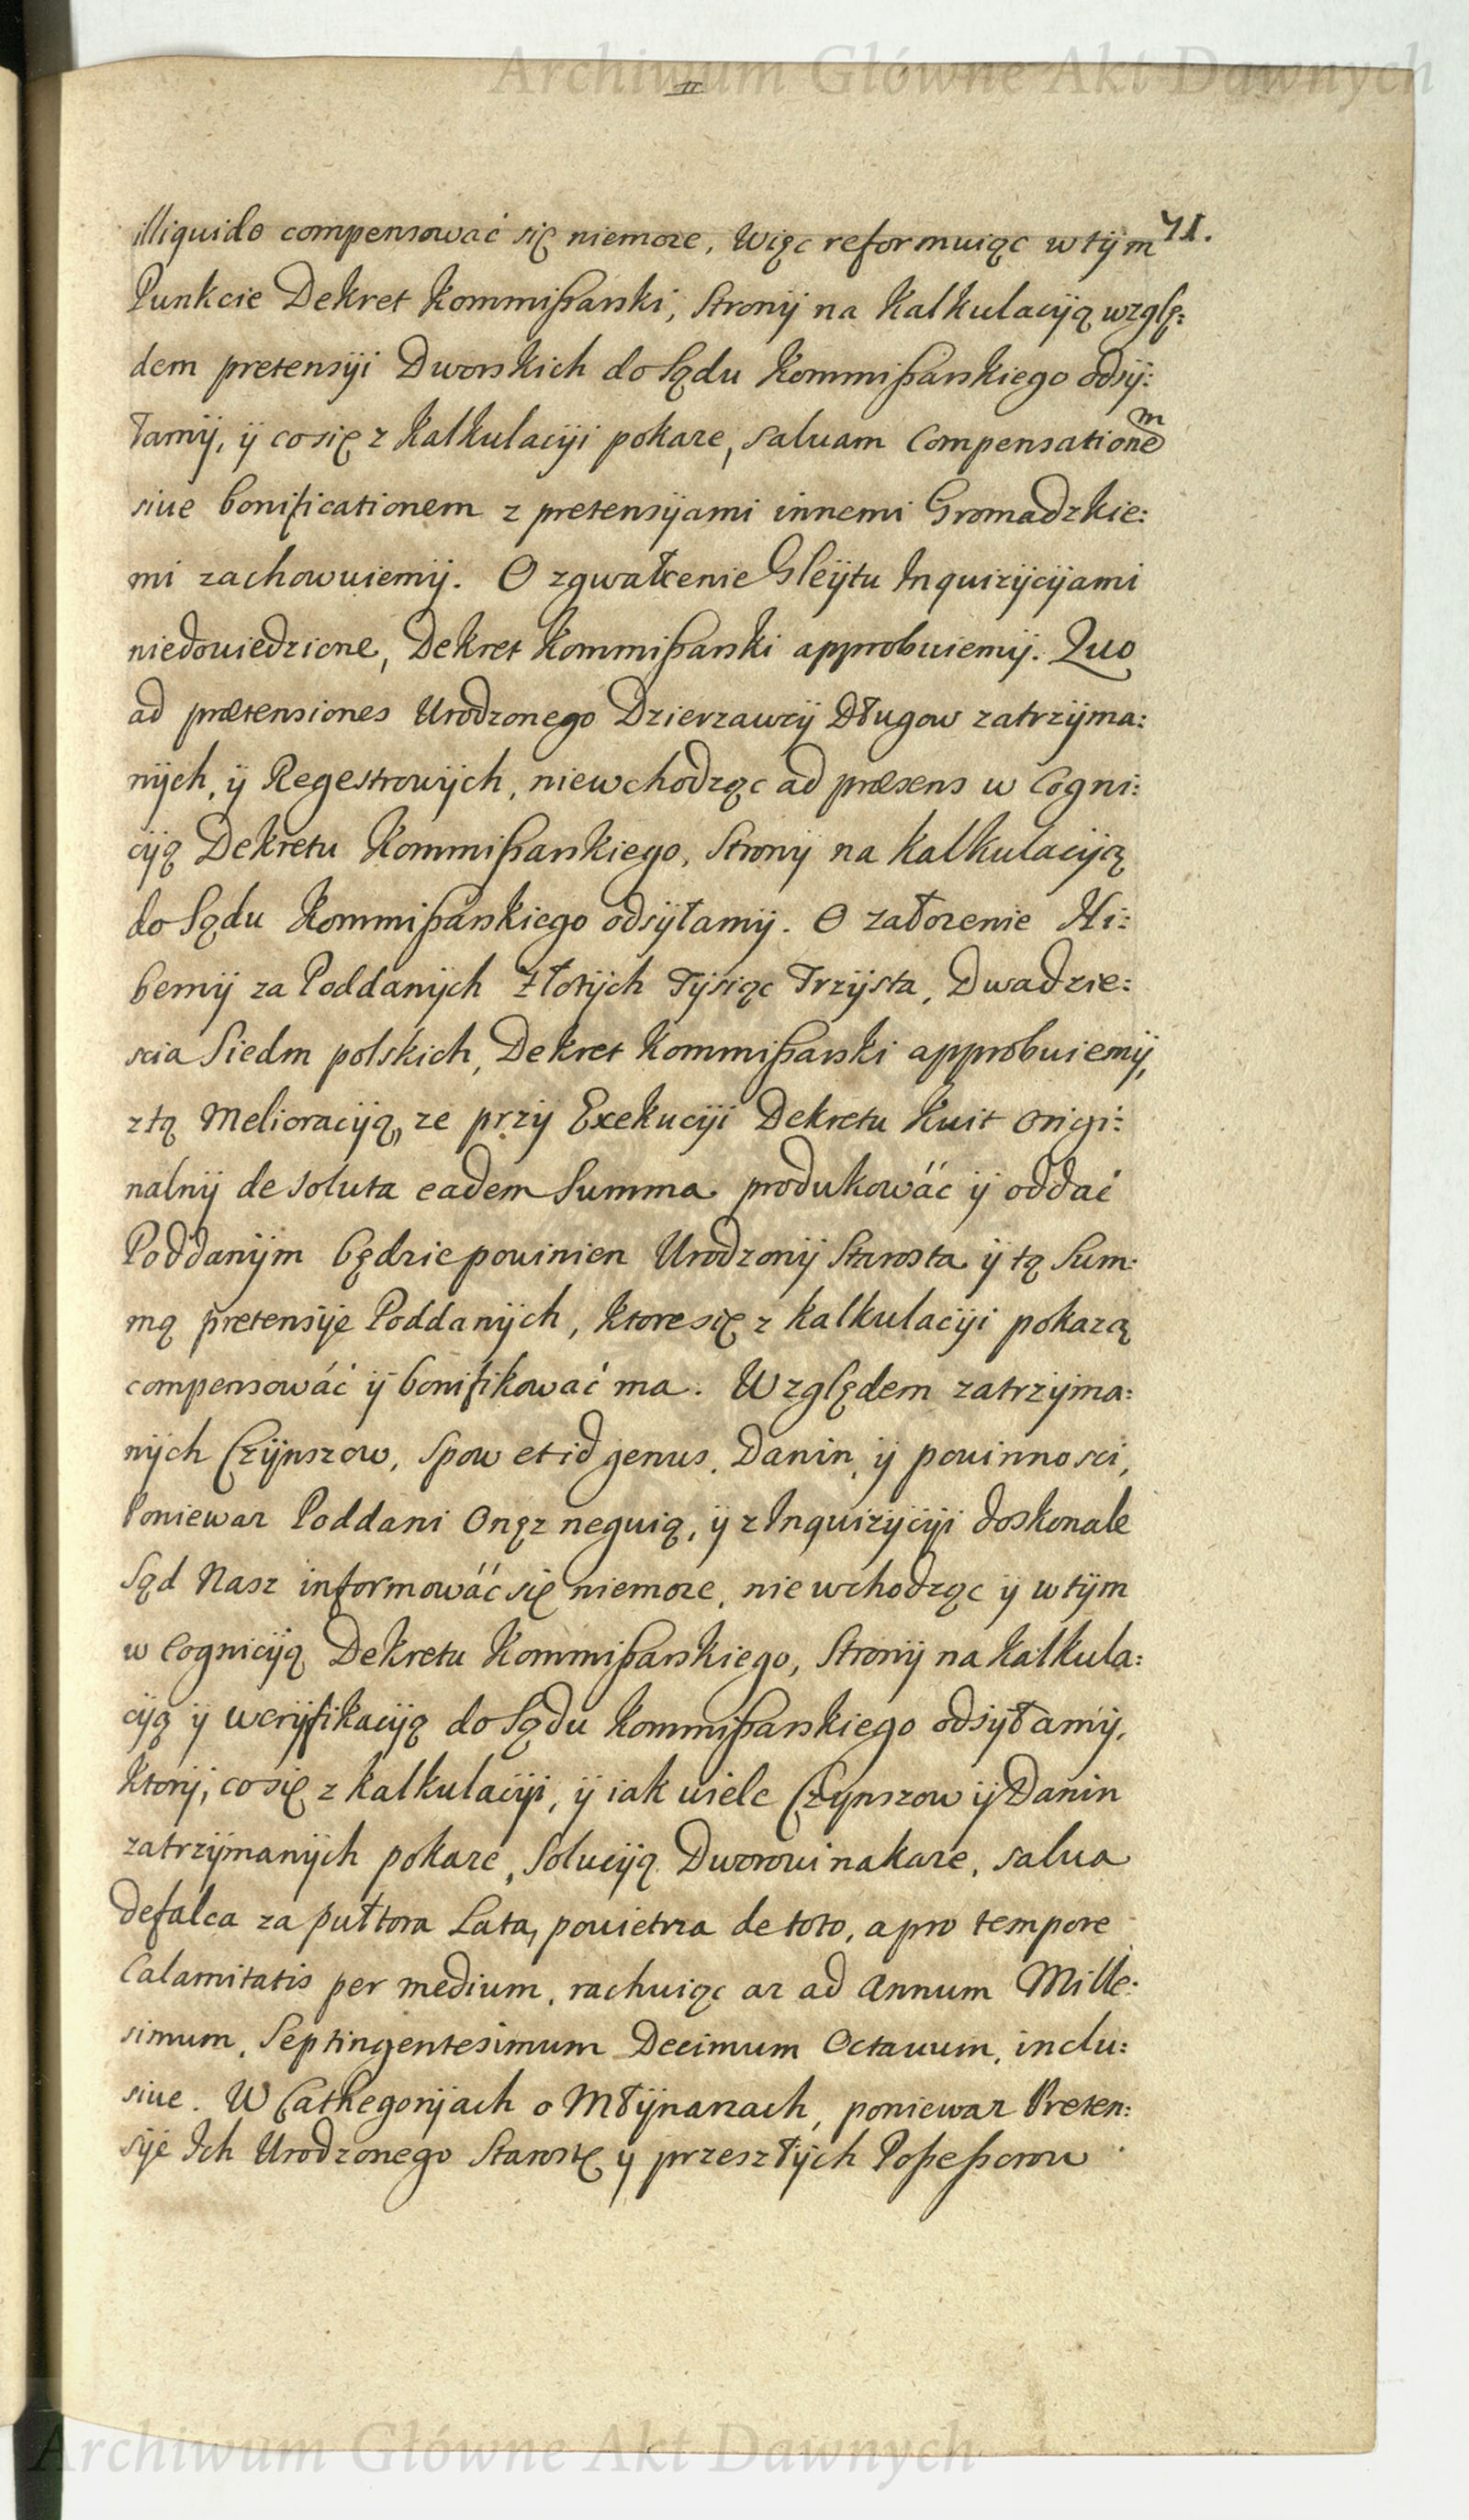 Archiwum Główne Akt Dawnych
II
71.
illiquido compensować się niemoze, Więc reformuiąc w tÿm
Punkcie Dekret Kommißarski, Stronÿ na Kalkulacÿą wzglę:
dem pretensÿi Dworskich do Sądu Kommißarskiego odsÿ:
łamÿ, ÿ co się z Kalkulacÿi pokaze, saluam Compensationem
siue bonificationem z pretensÿami innemi Gromadzkie:
mi zachowuiemÿ. O zgwałcenie Gleÿtu Inquizÿcÿami
niedowiedzione, Dekret Kommißarski approbuiemÿ. Quo
ad prætensiones Urodzonego Dzierzawcÿ Długow zatrzÿma:
nÿch, ÿ Regestrowÿch, niewchodząc ad præsens w Cogni:
cÿą Dekretu Kommißarskiego, Stronÿ na Kalkulacÿią
do Sądu Kommißarskiego odsÿłamÿ. O załozenie Hi:
bernÿ za Poddanÿch Złotÿch Tÿsiąc Trzÿsta, Dwadzie:
scia Siedm polskich, Dekret Kommißarski approbuiemÿ,
z tą Melioracÿą, ze przÿ Exekucÿi Dekretu Kwit origi:
nalnÿ de soluta eadem Summa produkowáć ÿ oddać
Poddanÿm będzie powinien Urodzonÿ Starosta ÿ tą Sum:
mą pretensÿe Poddanÿch, ktore się z kalkulacÿi pokazą
compensowáć ÿ bonifikować ma. Względem zatrzÿma:
nÿch Czÿnszow, Spow et id genus, Danin, ÿ powinnosci,
Poniewaz Poddani Onęz neguią, ÿ z Inquizÿcÿi doskonale
Sąd Nasz informowáć się niemoze, nie wchodząc ÿ w tÿm
w Cognicÿą Dekretu Kommißarskiego, Stronÿ na Kalkula:
cÿą ÿ werÿfikacÿą do Sądu Kommißarskiego odsÿłamÿ,
Ktorÿ, co się z kalkulacÿi, ÿ iak wiele Czÿnszow ÿ Danin
zatrzÿmanÿch pokaze, Solucÿą Dworowi nakaze, salua
defalca za pułtora Lata, powietrza de toto, a pro tempore
Calamitatis per medium, rachuiąc az ad Annum Mille:
simum, Septingentesimum Decimum Octauum, inclu:
siue. W Cathegorÿach o Młÿnarzach, poniewaz Preten:
sÿe Ich Urodzonego Starostę ÿ przeszłÿch Poßeßorow
Archiwum Główne Akt Dawnych